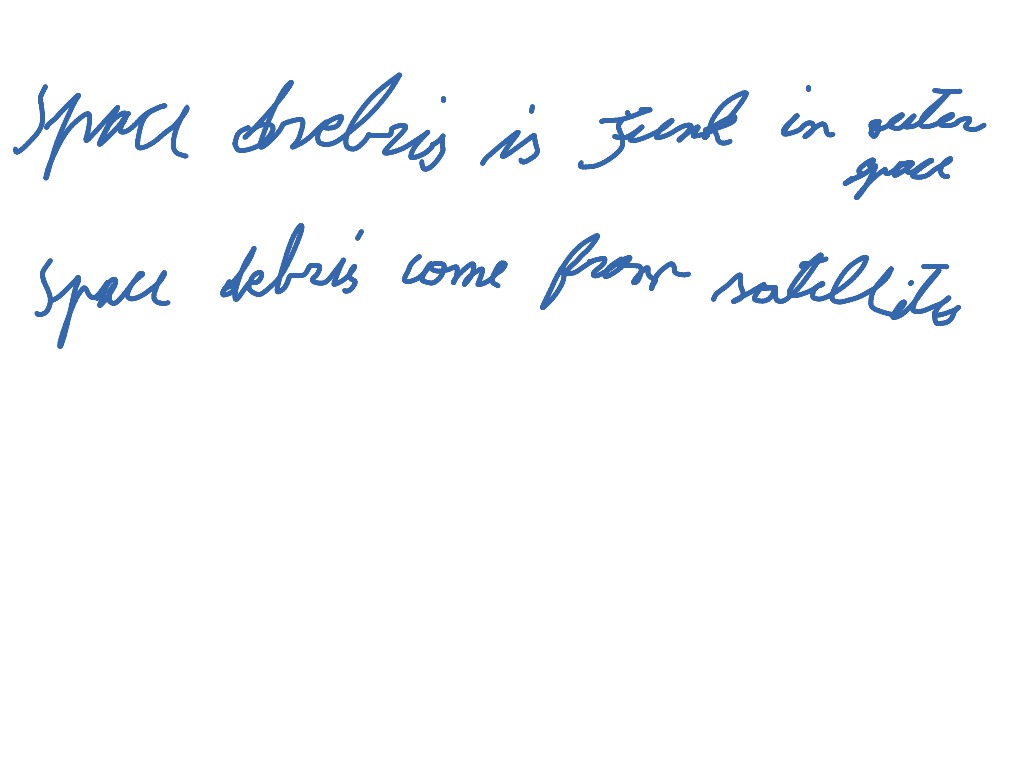 space drebris is junk in outer
space
space debris come from satellites